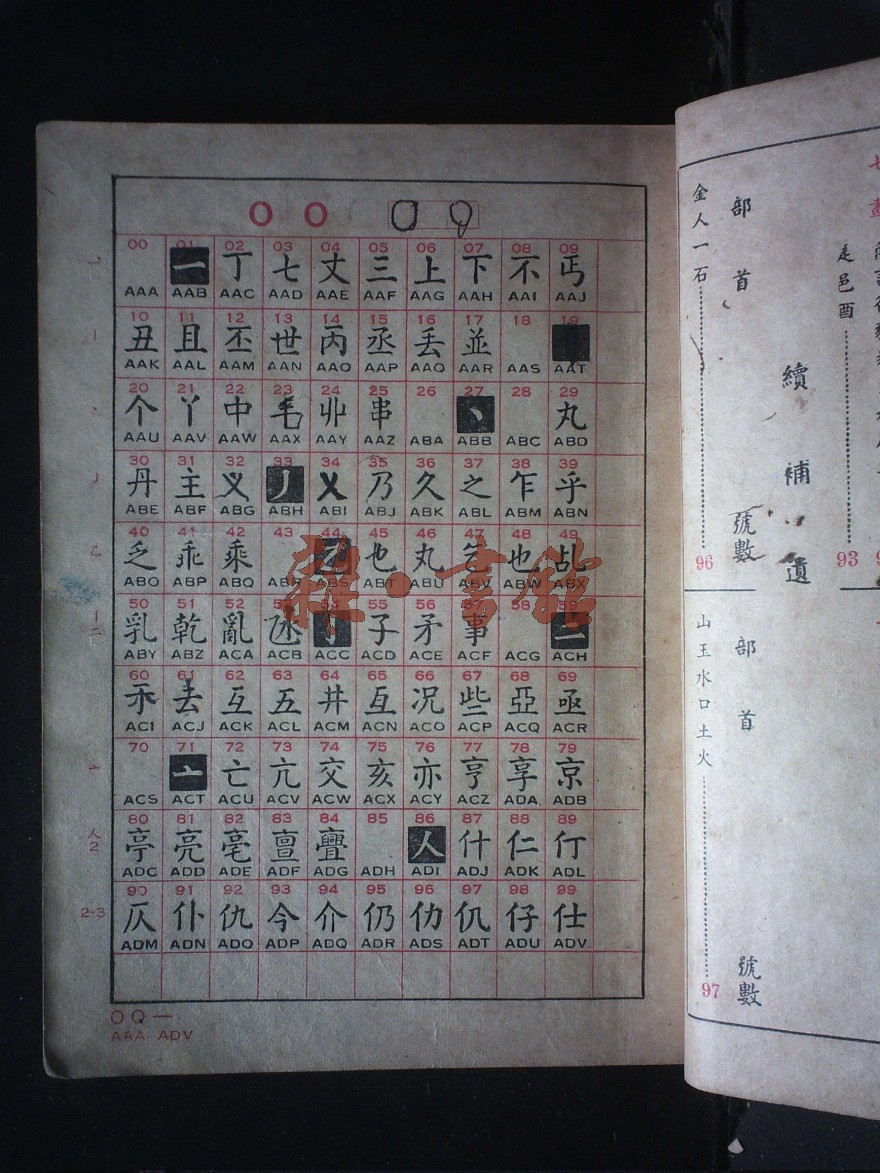 00 09
00 01 02 03 04 05 06 07 08 09
一 丁 七 丈 三 上 下 不 丐
AAA AAB AAC AAD AAE AAF AAG AAH AAI AAJ
10 11 12 13 14 15 16 17 18 19
丑 且 丕 世 丙 丞 丢 並 丨
AAK AAL AAM AAN AAO AAP AAQ AAR AAS AAT
20 21 22 23 24 25 26 27 28 29
个 丫 中 丱 串 丶 丸
AAU AAV AAW AAX AAY AAZ ABA ABB ABC ABD
30 31 32 33 34 35 36 37 38 39
丹 主 义 丿 乂 乃 久 之 乍 乎
ABE ABF ABG ABH ABI ABJ ABK ABL ABM ABN
40 41 42 43 44 45 46 47 48 49
乏 乖 乘 乙 也 乩
ABO ABP ABQ ABR ABS ABT ABU ABV ABW ABX
50 51 52 53 55 56 57 58 59
乳 乾 亂 亅 子 矛 事 二
ABY ABZ ACA ACB ACC ACD ACE ACF ACG ACH
60 61 62 63 64 65 66 67 68 69
互 五 井 亙 况 些 亞 亟
ACI ACJ ACK ACL ACM ACN ACO ACP ACQ ACR
70 71 72 73 74 75 76 77 78 79
亠 亡 亢 交 亥 亦 亨 享 京
ACS ACT ACU ACV ACW ACX ACY ACZ ADA ADB
80 81 82 83 84 85 86 87 88 89
亭 亮 亳 亶 亹 人 什 仁 仃
ADC ADD ADE ADF ADG ADH ADI ADJ ADK ADL
90 91 92 93 94 95 96 97 98 99
仄 仆 仇 今 介 仍 仂 仉 仔 仕
ADM ADN ADO ADP ADQ ADR ADS ADT ADU ADV
人2
2-3
00—
AAA—ADV
走邑酉 93
續補遺
部首 號數
金人一石 96
部首 號數
山玉水口土火 97